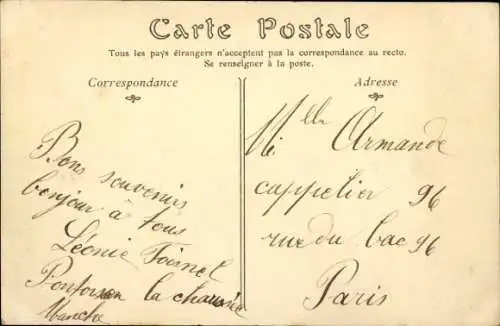 Carte Postale
Tous les pays étrangers n'acceptent pas la correspondance au recto.
Se renseigner à la poste.
Correspondance
Bons souvenirs
bonjour à tous
Léonie Foisnel
Pontorson la chaussée
Manche
Adresse
Mlle Armande
cappelier 96
rue du bac 96
Paris